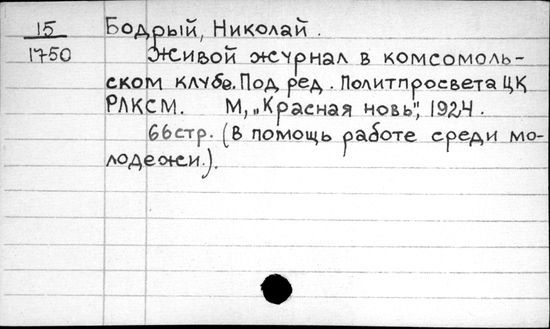 15 Бодрый, Николай.
1750 Живой журнал в комсомоль-
ском клубе. Под ред. Политпросвета ЦК
РЛКСМ. М, „Красная новь", 1924.
66стр. (В помощь работе среди мо-
лодежи.).